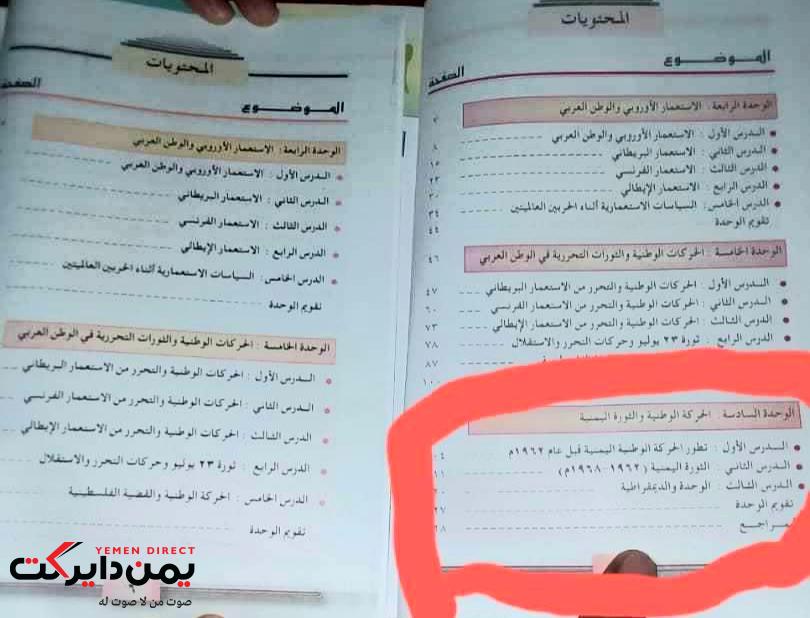 المحتويات
الموضوع
الصفحة
الوحدة الرابعة : الاستعمار الأوروبي والوطن العربي ٧
الدرس الأول : الاستعمار الأوروبي والوطن العربي ٨
الدرس الثاني : الاستعمار البريطاني ١٥
الدرس الثالث : الاستعمار الفرنسي ٢٣
الدرس الرابع : الاستعمار الإيطالي ٣٠
الدرس الخامس : السياسات الاستعمارية أثناء الحربين العالميتين ٣٤
تقويم الوحدة ٤٤
الوحدة الخامسة : الحركات الوطنية والثورات التحررية في الوطن العربي ٤٦
الدرس الأول : الحركات الوطنية والتحرر من الاستعمار البريطاني ٤٧
الدرس الثاني : الحركات الوطنية والتحرر من الاستعمار الفرنسي ٦٠
الدرس الثالث : الحركات الوطنية والتحرر من الاستعمار الإيطالي ٧٣
الدرس الرابع : ثورة ٢٣ يوليو وحركات التحرر والاستقلال ٧٨
٨٧
١٠٠
الوحدة السادسة : الحركة الوطنية والثورة اليمنية
الدرس الأول : تطور الحركة الوطنية اليمنية قبل عام ١٩٦٢م
الدرس الثاني : الثورة اليمنية (١٩٦٢-١٩٦٨م)
الدرس الثالث : الوحدة والديمقراطية
تقويم الوحدة
المحتويات
الموضوع
الصفحة
الوحدة الرابعة : الاستعمار الأوروبي والوطن العربي
الدرس الأول : الاستعمار الأوروبي والوطن العربي
الدرس الثاني : الاستعمار البريطاني
الدرس الثالث : الاستعمار الفرنسي
الدرس الرابع : الاستعمار الإيطالي
الدرس الخامس : السياسات الاستعمارية أثناء الحربين العالميتين
تقويم الوحدة
الوحدة الخامسة : الحركات الوطنية والثورات التحررية في الوطن العربي
الدرس الأول : الحركات الوطنية والتحرر من الاستعمار البريطاني
الدرس الثاني : الحركات الوطنية والتحرر من الاستعمار الفرنسي
الدرس الثالث : الحركات الوطنية والتحرر من الاستعمار الإيطالي
الدرس الرابع : ثورة ٢٣ يوليو وحركات التحرر والاستقلال
الدرس الخامس : الحركة الوطنية والقضية الفلسطينية
تقويم الوحدة
YEMEN DIRECT
يمن دايركت
صوت من لا صوت له